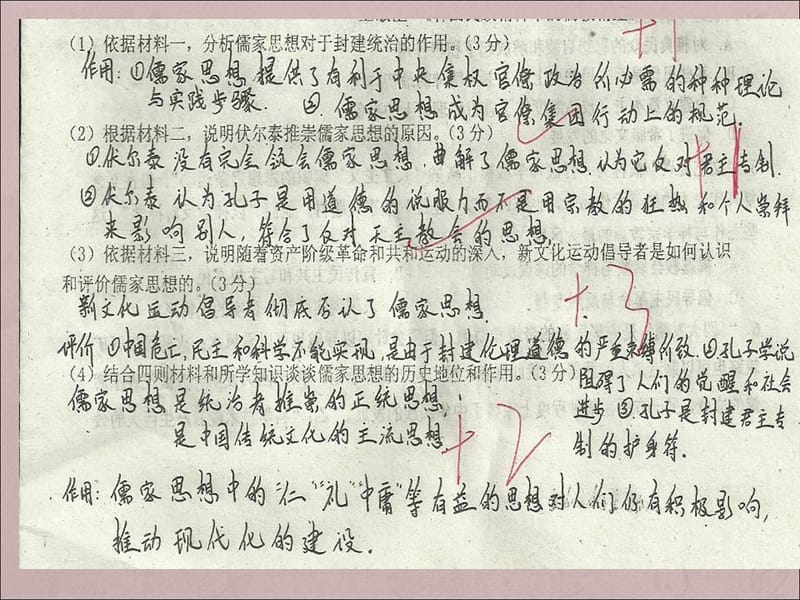 +1
(1) 依据材料一，分析儒家思想对于封建统治的作用。(3分)
作用：①儒家思想提供了有利于中央集权官僚政治所必需的种种理论
与实践步骤. ②. 儒家思想成为官僚集团行动上的规范.
(2) 根据材料二，说明伏尔泰推崇儒家思想的原因。(3分)
+1
①伏尔泰没有完全领会儒家思想，曲解了儒家思想.认为它反对君主专制.
②伏尔泰认为孔子是用道德的说服力而不是用宗教的狂热和个人崇拜
来影响别人，符合了反对天主教会的思想，
(3) 依据材料三，说明随着资产阶级革命和共和运动的深入，新文化运动倡导者是如何认识
和评价儒家思想的。(3分)
+3
新文化运动倡导者彻底否认了儒家思想
评价①中国危亡,民主和科学不能实现,是由于封建伦理道德的严重束缚所致.②孔子学说
阻碍了人们的觉醒和社会
进步③.孔子是封建君主专
制的护身符.
(4) 结合四则材料和所学知识谈谈儒家思想的历史地位和作用。(3分)
儒家思想是统治者推崇的正统思想，
是中国传统文化的主流思想
+2
作用：儒家思想中的“仁”“礼”“中庸”等有益的思想对人们仍有积极影响，
推动现代化的建设.